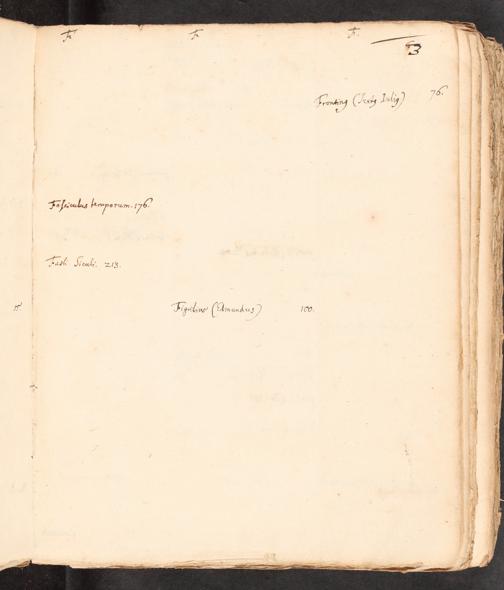 F. F. F.
3
Frontinus (Sextus Iulius) 76.
Fasciculus temporum. 176.
Fasti Siculi. 213.
(Edmundus) 100.